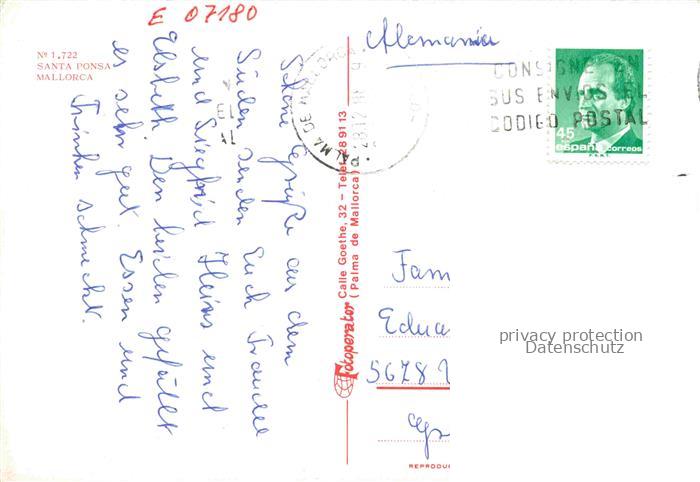 E 07180
Nº 1.722
SANTA PONSA
MALLORCA
Schöne Grüße aus dem
Süden senden Euch Traudel
und Siegfried Heins und
Elsbeth. Den beiden gefällt
es sehr gut. Essen und
Trinken schmeckt.
Fotoperator Calle Goethe, 32 – Telef. 28 91 13
(Palma de Mallorca)
Alemania
PALMA DE MALLORCA
CONSIGNE EN
SUS ENVIOS EL
CODIGO POSTAL
45
españa correos
F.N.M.T.
Fam
Edua
5678
REPRODU
privacy protection
Datenschutz